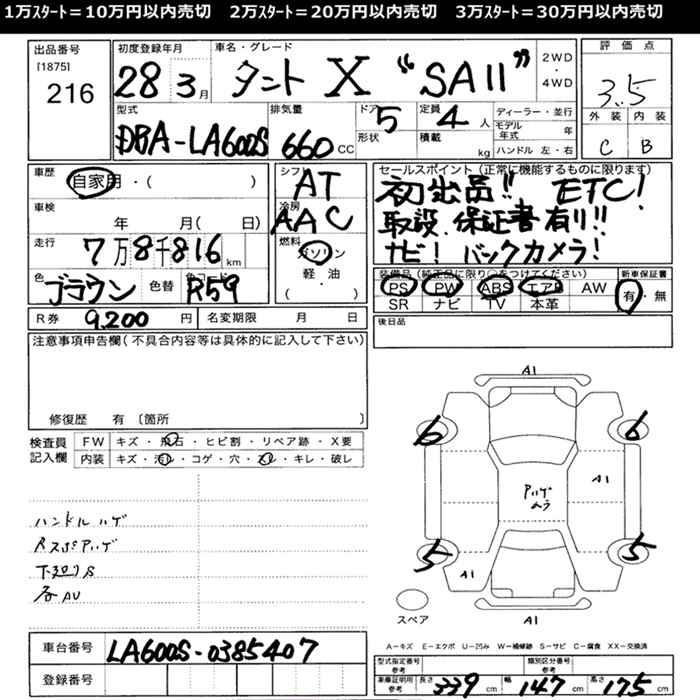 1万スタート＝10万円以内売切　2万スタート＝20万円以内売切　3万スタート＝30万円以内売切
出品番号
[1875]
216
初度登録年月
28 3月
車名・グレード
タント X "SAⅡ"
2WD
・
4WD
評価点
3.5
外装 内装
C B
型式
DBA-LA600S
排気量
660 CC
ドア 5
形状
定員 4 人
積載 kg
ディーラー・並行
モデル年式 年
ハンドル 左・右
車歴
自家用・( )
車検
年 月( 日)
走行
7万8千816 km
色
ブラウン
色替
色コード
R59
シフト
AT
冷房
AAC
燃料
ガソリン
軽・油
( ・ )
セールスポイント (正常に機能するものに限ります)
初出品!! ETC!
取説、保証書有り!!
ナビ! バックカメラ!
装備品(純正品に限り○をつけてください)
PS PW ABS エアB AW
SR ナビ TV 本革
新車保証書
有・無
R券 9,200 円
名変期限 月 日
後日品
注意事項申告欄(不具合内容等は具体的に記入して下さい)
修復歴 有 〔箇所 〕
検査員
記入欄
FW キズ・飛石・ヒビ割・リペア跡・X要
内装 キズ・汚れ・コゲ・穴・スレ・キレ・破レ
ハンドルハゲ
下廻りS
各AU
A1
6 6
A1
5 5
A1
A1
スペア
A－キズ E－エクボ U－凹み W－補修跡 S－サビ C－腐食 XX－交換済
車台番号 LA600S-0385407
登録番号
型式指定番号
参考
類別区分番号
参考
車庫証明用
参考
長さ 339 cm 幅 147 cm 高さ 175 cm